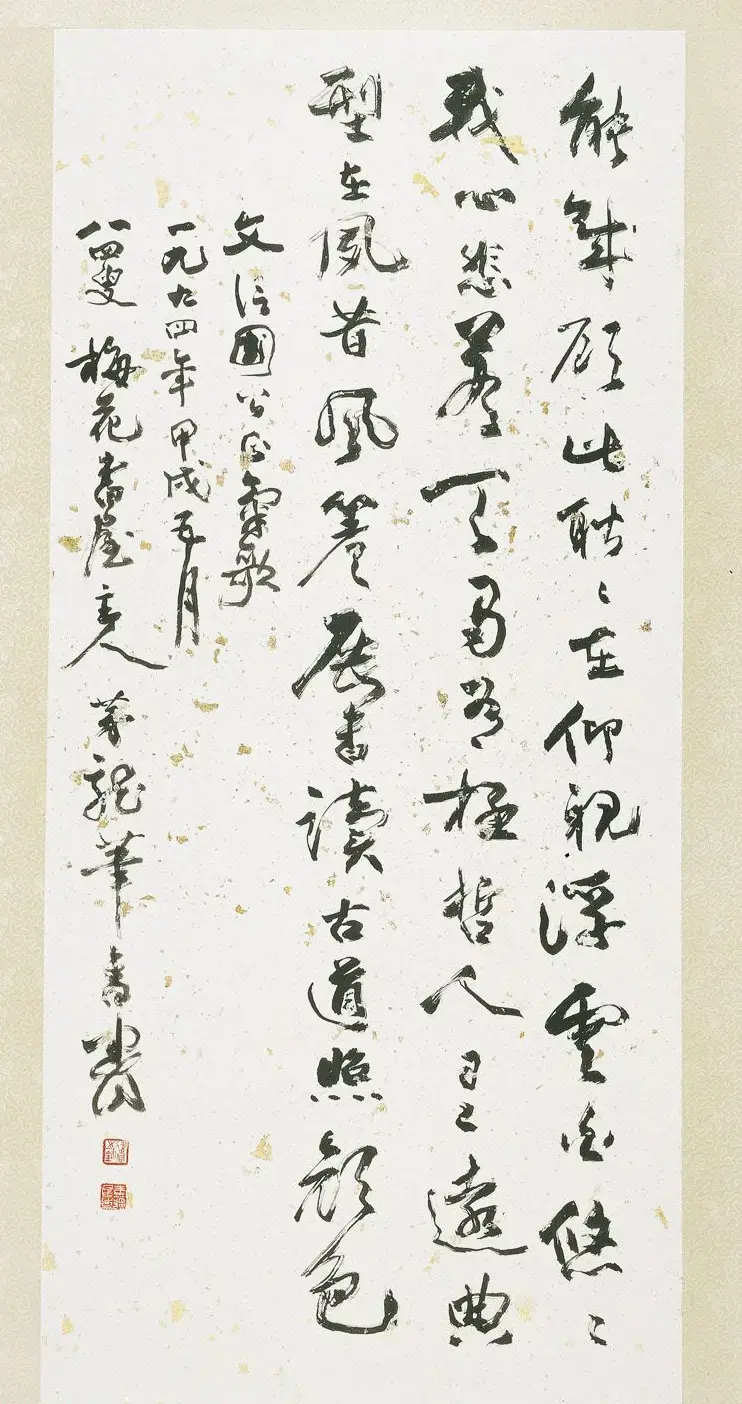 能賊顧此耿〻在仰視浮雲白悠〻
我心悲蒼天曷有極哲人日已遠典
型在夙昔風簷展書讀古道照顏色
文信國公正氣歌
一九九四年甲戌五月
八四叟梅花書屋主人茅龍筆書